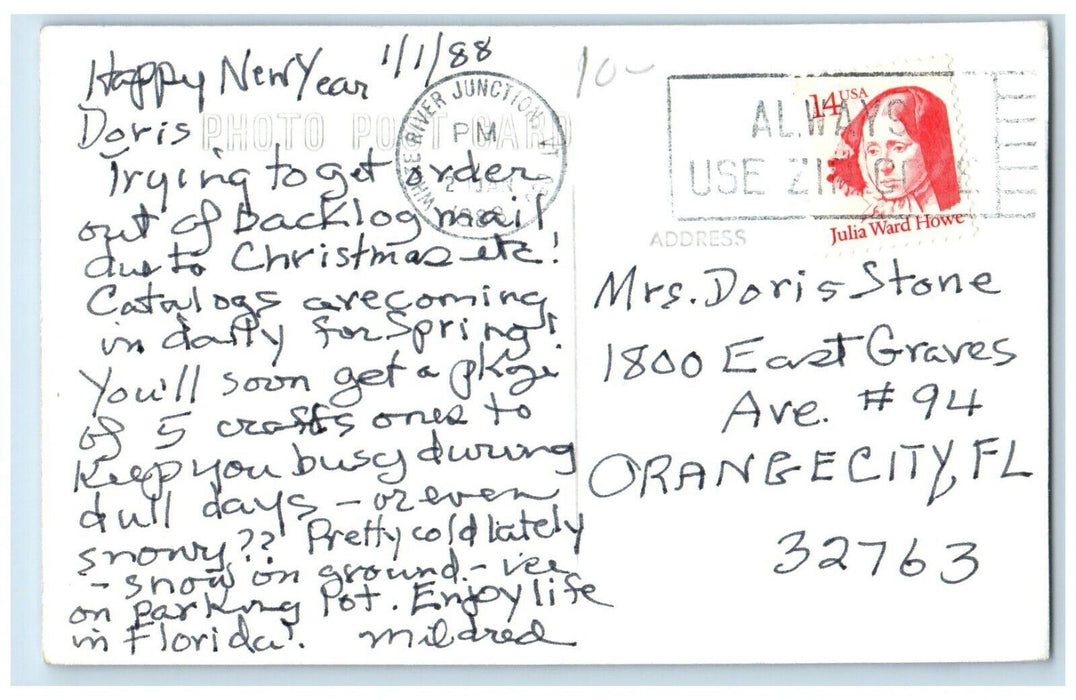 Happy New Year 1/1/88
Doris
PHOTO POST CARD
Trying to get order
out of backlog mail
due to Christmas etc!
Catalogs are coming
in daily for Spring!
You'll soon get a pkge
of 5 crafts ones to
keep you busy during
dull days - or even
snowy?? Pretty cold lately
- snow on ground - ice
on parking lot. Enjoy life
in Florida! Mildred
10-
WHITE RIVER JUNCTION, VT
PM
2 JAN
1988
ALWAYS
USE ZIP CODES
14 USA
Julia Ward Howe
ADDRESS
Mrs. Doris Stone
1800 East Graves
Ave. #94
ORANGE CITY, FL
32763